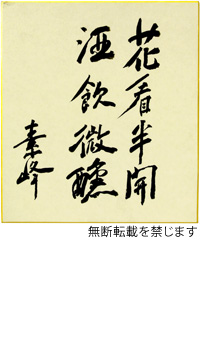 花看半開
酒飲微醺
素峰
無断転載を禁じます